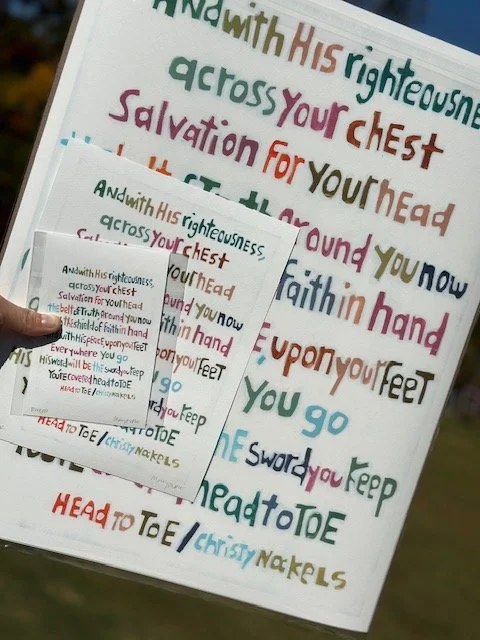 And with His righteousne
across your chest
Salvation for your head
the belt of Truth around you now
Faith in hand
upon your FEET
you go
THE sword you keep
head to TOE
HEAD to TOE / christy Nockels
And with His righteousness,
across your chest
your head
around you now
faith in hand
upon your FEET
you go
sword you keep
to TOE
HEAD to TOE / christy Nockels
And with His righteousness,
across your chest
Salvation for your head
the belt of Truth around you now
the shield of faith in hand
with His peace upon your FEET
Everywhere you go
His word will be the sword you keep
You're covered head to TOE
HEAD to TOE / christy nockels